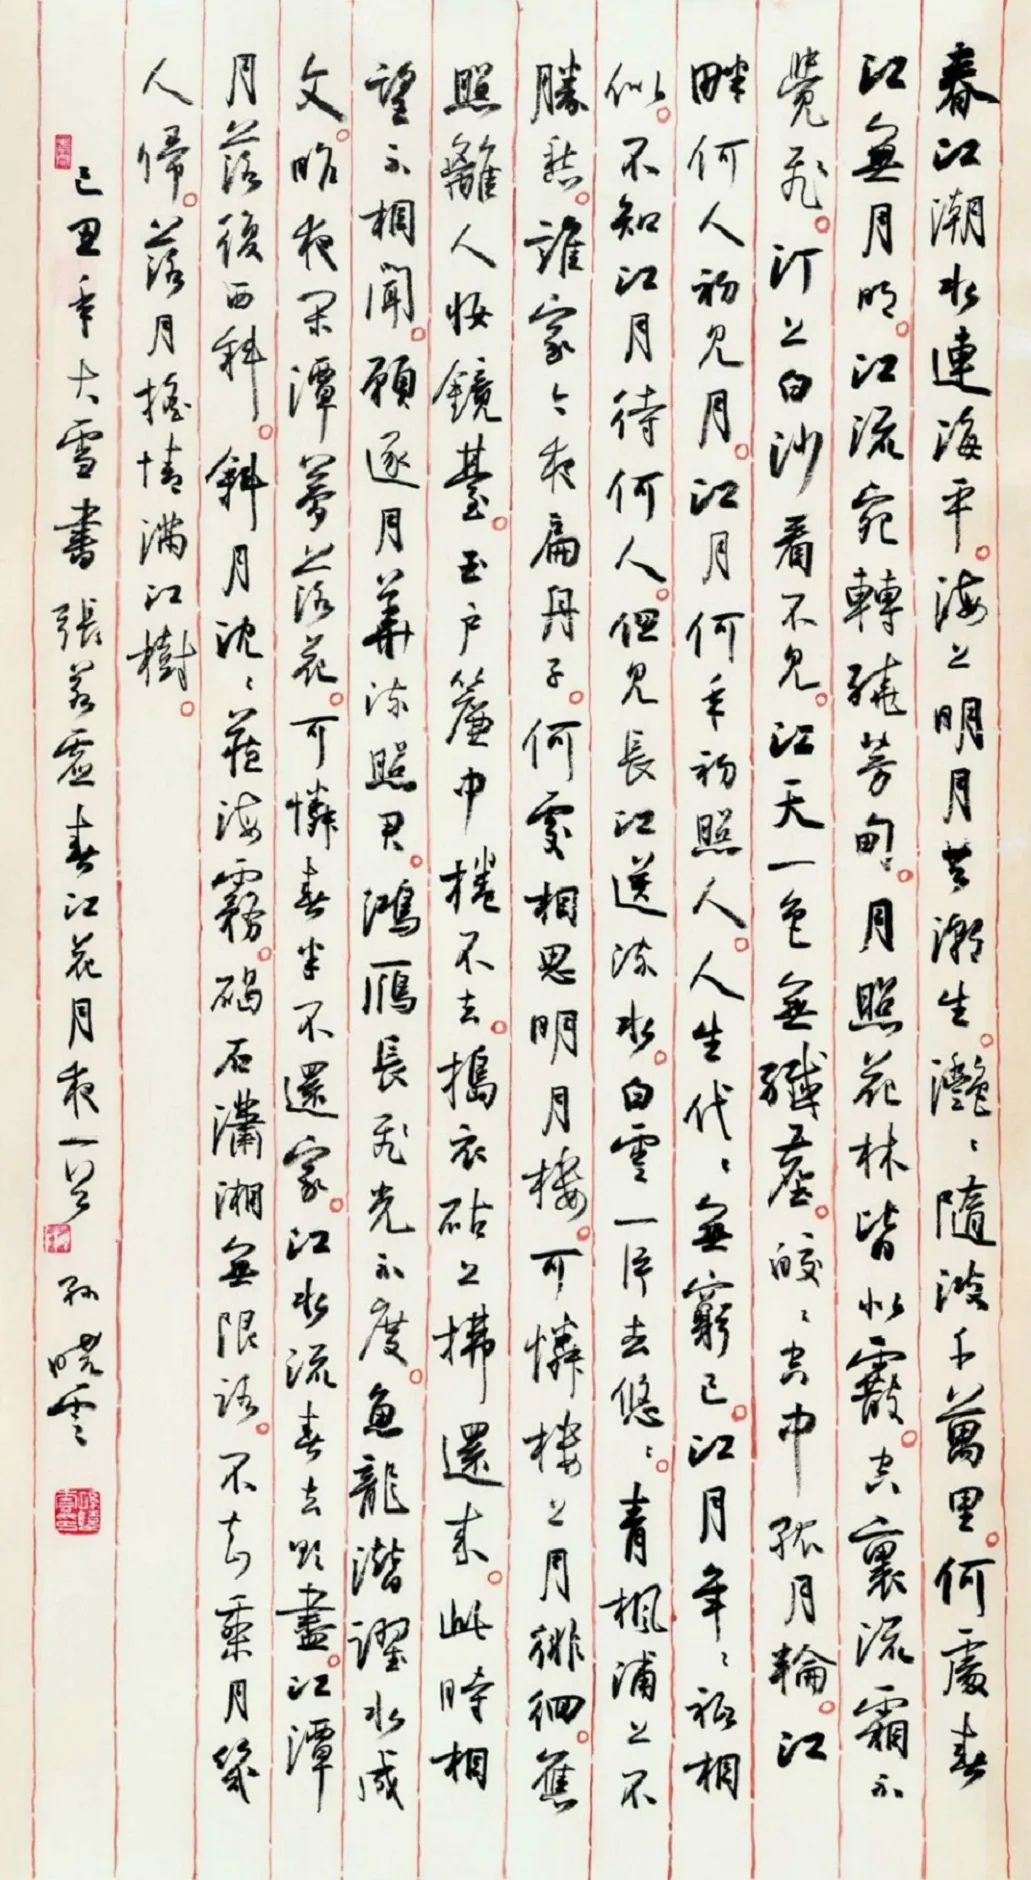 春江潮水連海平。海上明月共潮生。灩〻隨波千萬里。何處春
江無月明。江流宛轉繞芳甸。月照花林皆似霰。空裏流霜不
覺飛。汀上白沙看不見。江天一色無纖塵。皎〻空中孤月輪。江
畔何人初見月。江月何年初照人。人生代〻無窮已。江月年〻祇相
似。不知江月待何人。但見長江送流水。白雲一片去悠〻。青楓浦上不
勝愁。誰家今夜扁舟子。何處相思明月樓。可憐樓上月徘徊。應
照離人妝鏡臺。玉戶簾中捲不去。搗衣砧上拂還來。此時相
望不相聞。願逐月華流照君。鴻雁長飛光不度。魚龍潛躍水成
文。昨夜閑潭夢落花。可憐春半不還家。江水流春去欲盡。江潭
月落復西斜。斜月沈〻藏海霧。碣石瀟湘無限路。不知乘月幾
人歸。落月搖情滿江樹。
己丑年大雪書 張若虛春江花月夜一首 孫曉雲